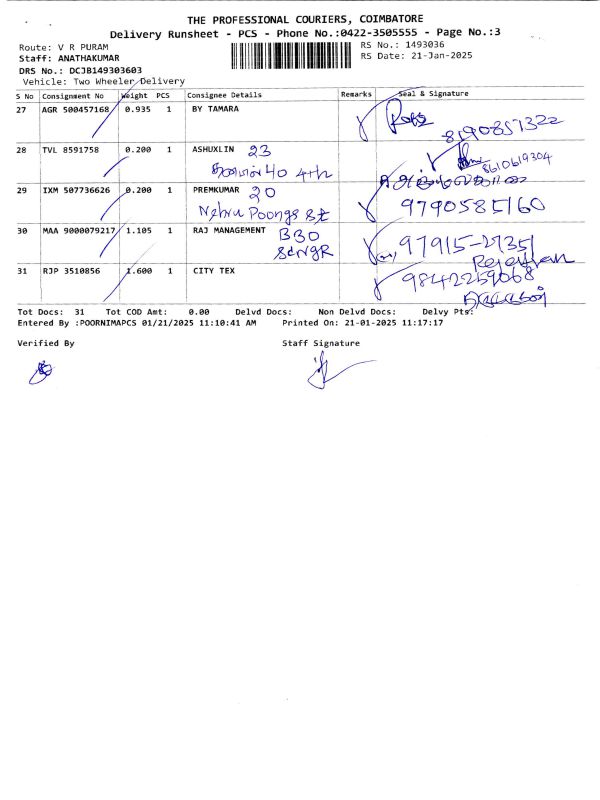 THE PROFESSIONAL COURIERS, COIMBATORE
Delivery Runsheet - PCS - Phone No.:0422-3505555 - Page No.:3
Route: V R PURAM RS No.: 1493036
Staff: ANATHAKUMAR RS Date: 21-Jan-2025
DRS No.: DCJB149303603
Vehicle: Two Wheeler/Delivery
S No Consignment No Weight PCS Consignee Details Remarks Seal & Signature
27 AGR 500457168 0.935 1 BY TAMARA
8190857322
28 TVL 8591758 0.200 1 ASHUXLIN 23 8610619304
40 4th
29 IXM 507736626 0.200 1 PREMKUMAR 20 9790585160
Nehru Poongs St
30 MAA 9000079217 1.105 1 RAJ MANAGEMENT B30 97915-27351
ScNGR Rajendran
31 RJP 3510856 1.600 1 CITY TEX 9842259068
Tot Docs: 31 Tot COD Amt: 0.00 Delvd Docs: Non Delvd Docs: Delvy Pts:
Entered By :POORNIMAPCS 01/21/2025 11:10:41 AM Printed On: 21-01-2025 11:17:17
Verified By Staff Signature